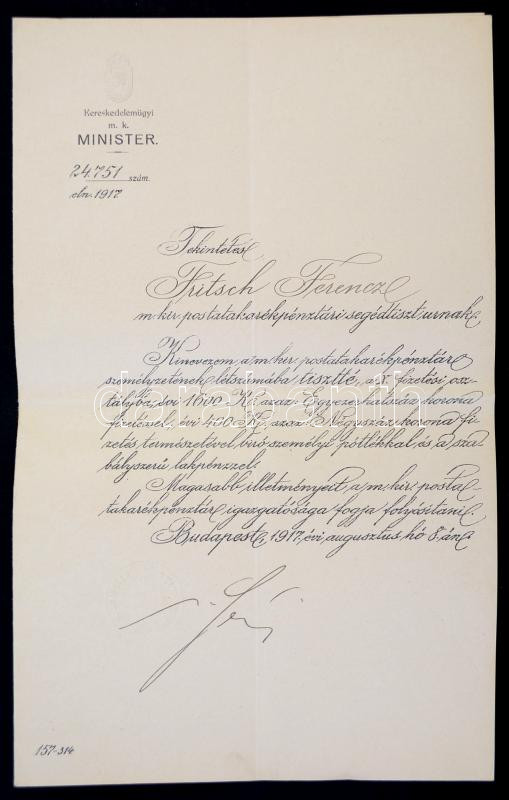 Kereskedelemügyi
m. k.
MINISTER.
24.751 szám.
eln. 1917.
Tekintetes
Fritsch Ferencz
m. kir. postatakarékpénztári segédtiszt urnak.
Kinevezem a m. kir. postatakarékpénztár
személyzetének létszámába tisztté, a X. fizetési osz-
tályba, évi 1600 K, azaz Egyezerhatszáz korona
fizetéssel, évi 400 K, azaz Négyszáz korona fi-
zetés természetével biró személyi pótlékkal és a sza-
bályszerű lakpénzzel.
Magasabb illetményeit a m. kir. posta-
takarékpénztár igazgatósága fogja folyósitani.
Budapest, 1917. évi augusztus hó 8.-án.
157-314